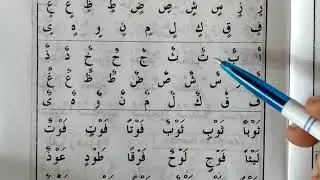 رٍ زٍ سٍ شٍ صٍ ضٍ طٍ ظٍ عٍ غٍ
فٍ قٍ كٍ لٍ مٍ نٍ وٍ هٍ یٍ
اٌ بٌ تٌ ثٌ جٌ حٌ خٌ دٌ ذٌ
رٌ زٌ سٌ شٌ صٌ ضٌ طٌ ظٌ عٌ غٌ
فٌ قٌ كٌ لٌ مٌ نٌ وٌ هٌ یٌ
ثَوْبًا ثَوْبٍ ثَوْبٌ فَوْتًا فَوْتٍ فَوْتٌ
لَيْثًا فَوْجٍ لَوْحٌ فَوْقًا طَوْدٍ عَوْذٌ